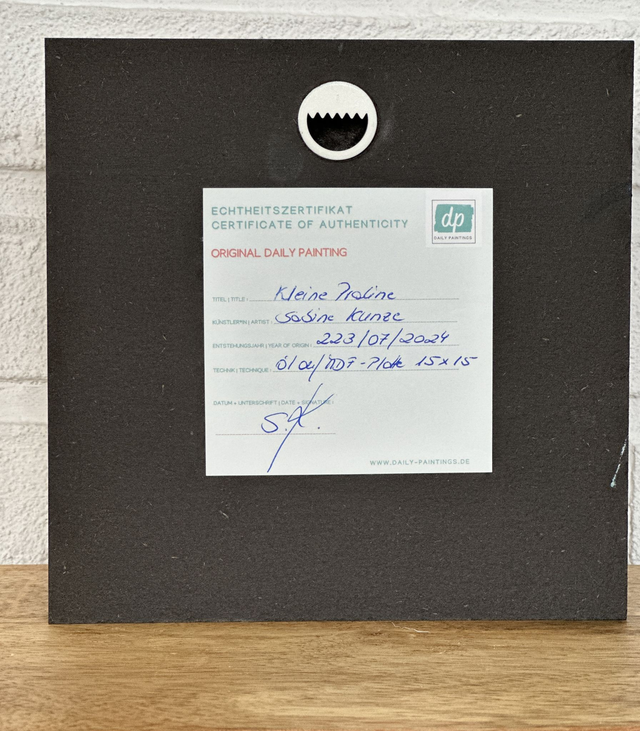 ECHTHEITSZERTIFIKAT
CERTIFICATE OF AUTHENTICITY
dp
DAILY PAINTINGS
ORIGINAL DAILY PAINTING
TITEL | TITLE: Kleine Praline
KÜNSTLER*IN | ARTIST: Sabine Kunze
ENTSTEHUNGSJAHR | YEAR OF ORIGIN: 223/07/2024
TECHNIK | TECHNIQUE: Öl auf MDF-Platte 15x15
DATUM + UNTERSCHRIFT | DATE + SIGNATURE:
S.K.
WWW.DAILY-PAINTINGS.DE